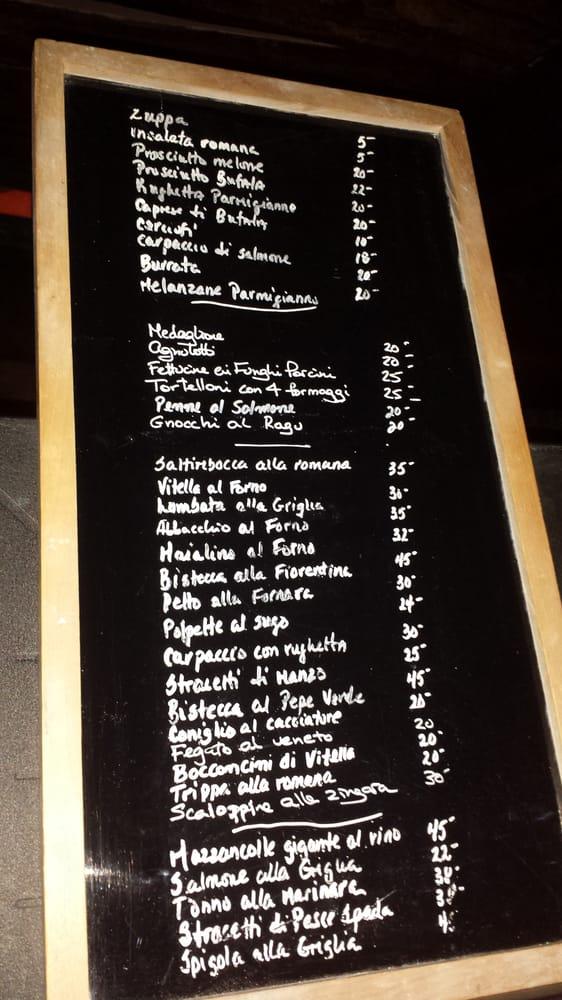 Zuppa 5-
Insalata romana 5-
Prosciutto melone 20-
Prosciutto Bufala 22-
Rughetta Parmigianno 20-
Caprese di Bufala 20-
Carciofi' 10-
Carpaccio di salmone 18-
Burrata 20-
Melanzane Parmigianno 20-
Medaglione 20-
Agnolotti 20-
Fettucine ai Funghi Porcini 25-
Tortelloni con 4 formaggi 25-
Penne al Salmone 20-
Gnocchi al Ragu 20-
Saltimbocca alla romana 35-
Vitella al Forno 30-
Lombata alla Griglia 35-
Abbacchio al Forno 32-
Maialino al Forno
Bistecca alla Fiorentina 45-
Petto alla Fornara 30-
Polpette al sugo 24-
Carpaccio con rughetta 30-
Stracetti di Manzo 25-
Bistecca al Pepe Verde 45-
Coniglio al cacciatore 20-
Fegato al veneto 20
Bocconcini di Vitella 20-
Trippa alla romana 20-
Scaloppine alla zingara 30-
Mazzancolle gigante al vino 45-
Salmone alla Griglia 22-
Tonno alla Marinara
Stracetti di Pesce Spada
Spigola alla Griglia